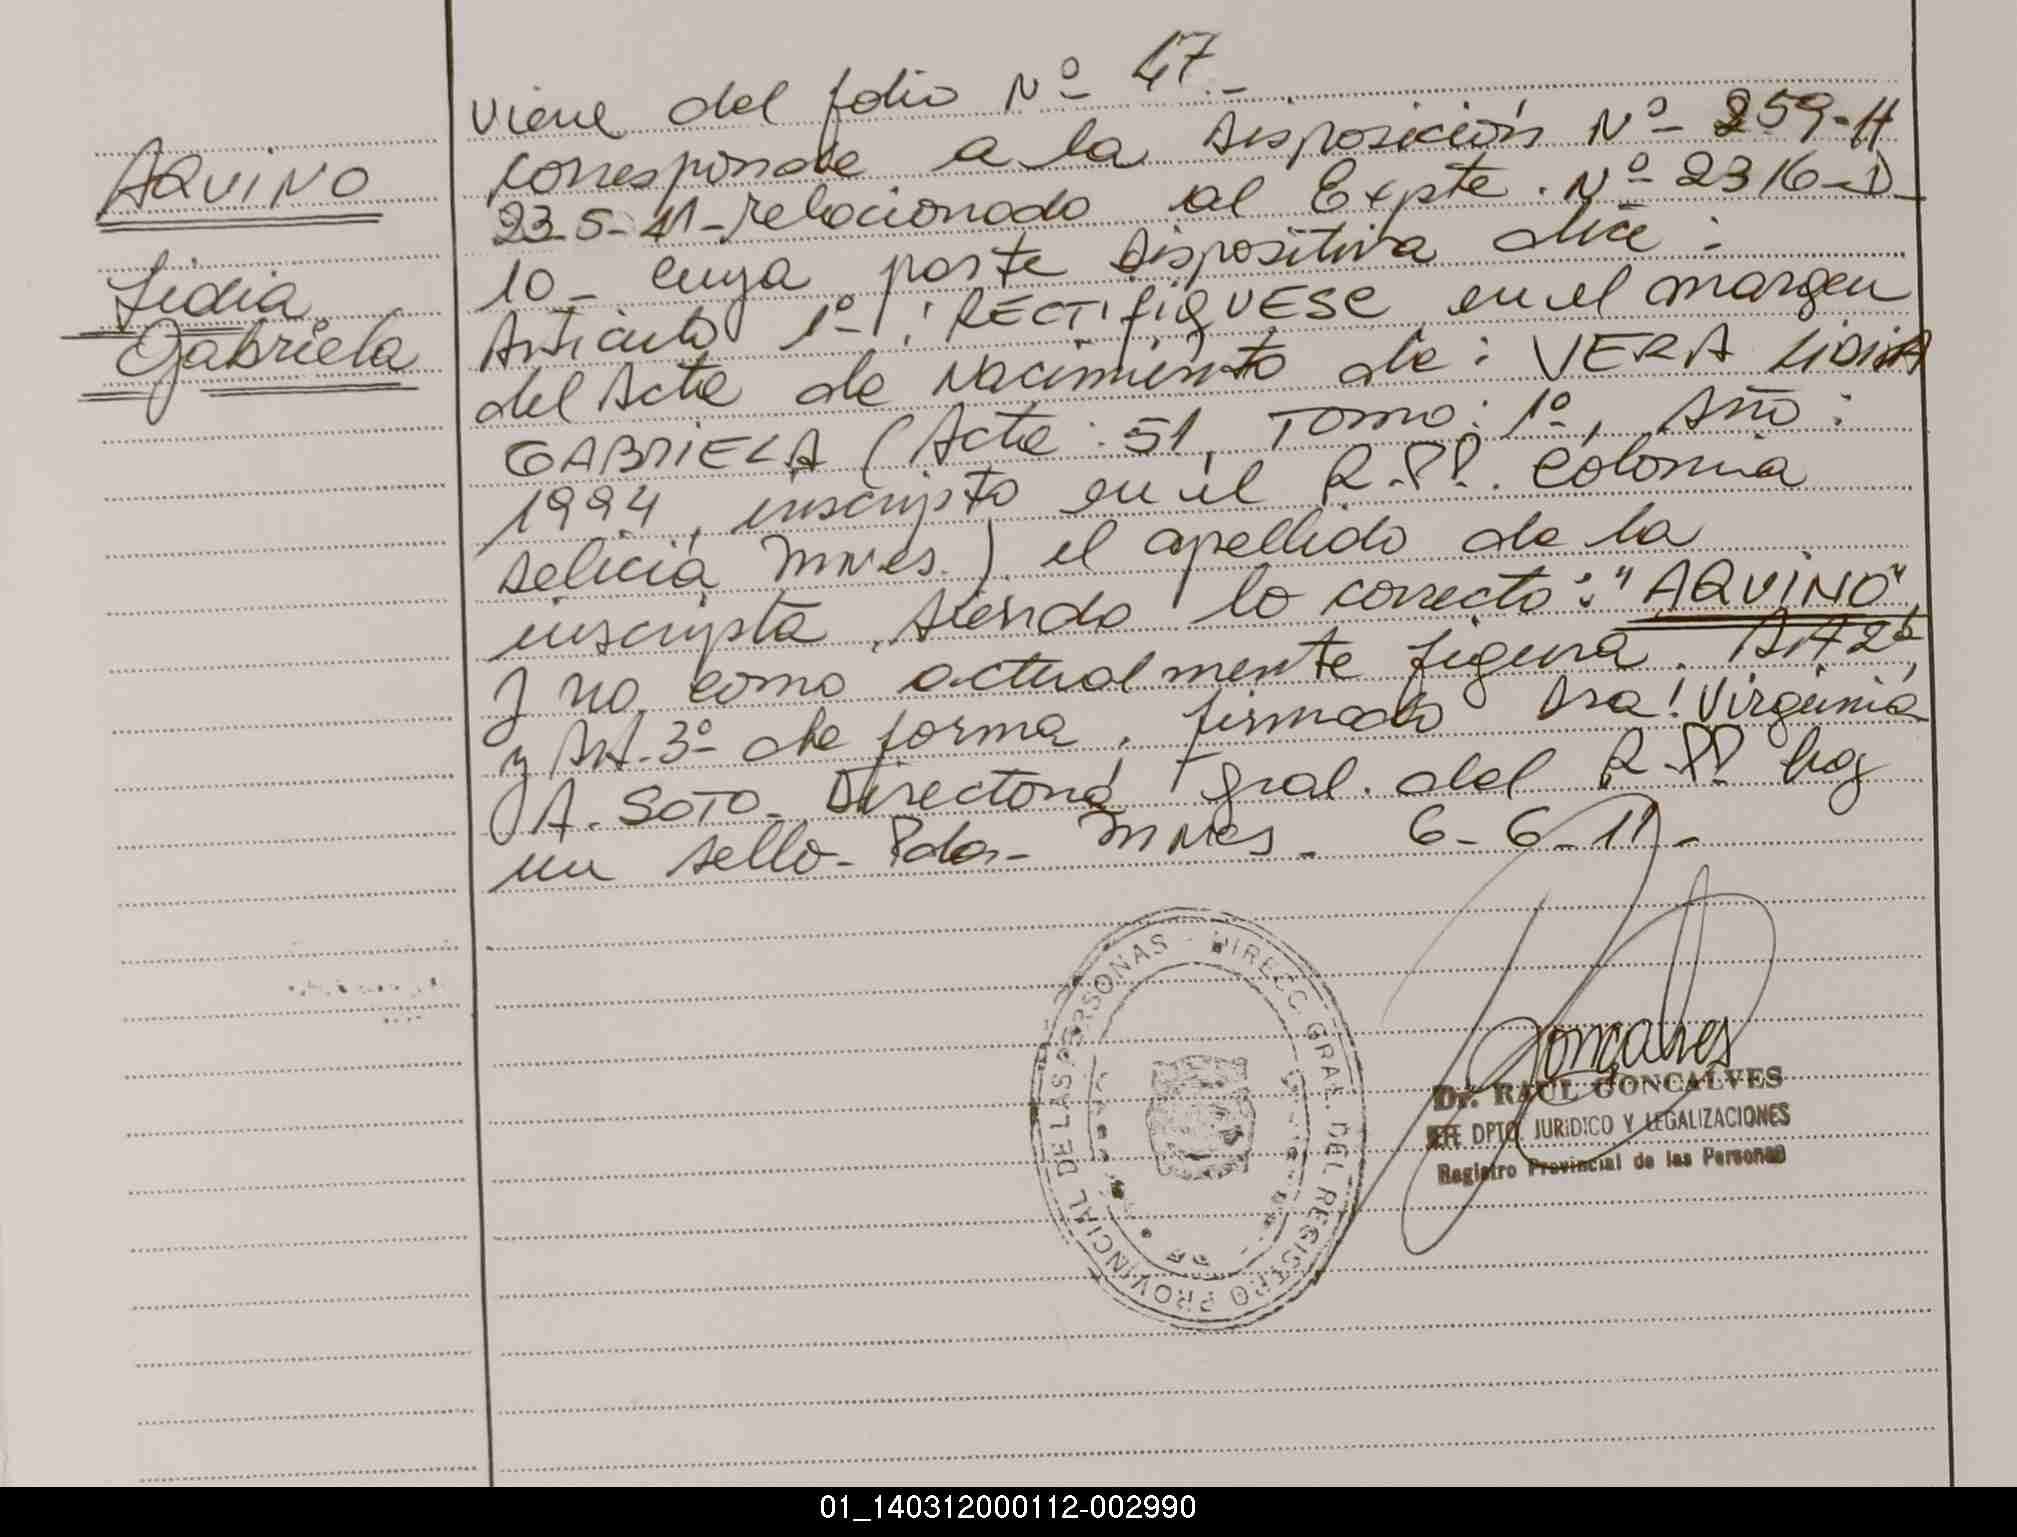 AQUINO
Lidia
Gabriela
Viene del folio Nº 47.-
Corresponde a la Disposición Nº 259-H
23-5-11-relacionado al Expte. Nº 2316-D-
10- cuya parte Dispositiva dice:
Articulo 1º: RECTIFIQUESE en el margen
del Acta de Nacimiento de: VERA LIDIA
GABRIELA (Acta: 51, TOMO: 1º, Año:
1994, inscripto en el R.P.P. Colonia
Delicia Mnes.) el apellido de la
inscripta, siendo lo correcto: "AQUINO",
y no como actualmente figura. Art 2º,
y Art. 3º de forma, firmado Dra! Virginia
A. SOTO- Directora Gral. del R.P.P. hay
un sello- Pdas- Mnes- 6-6-11-
DIRECC. GRAL. DEL REGISTRO PROVINCIAL DE LAS PERSONAS -
Gonçalves
Dr. RAUL GONCALVES
JEFE DPTO. JURIDICO Y LEGALIZACIONES
Registro Provincial de las Personas
01_140312000112-002990